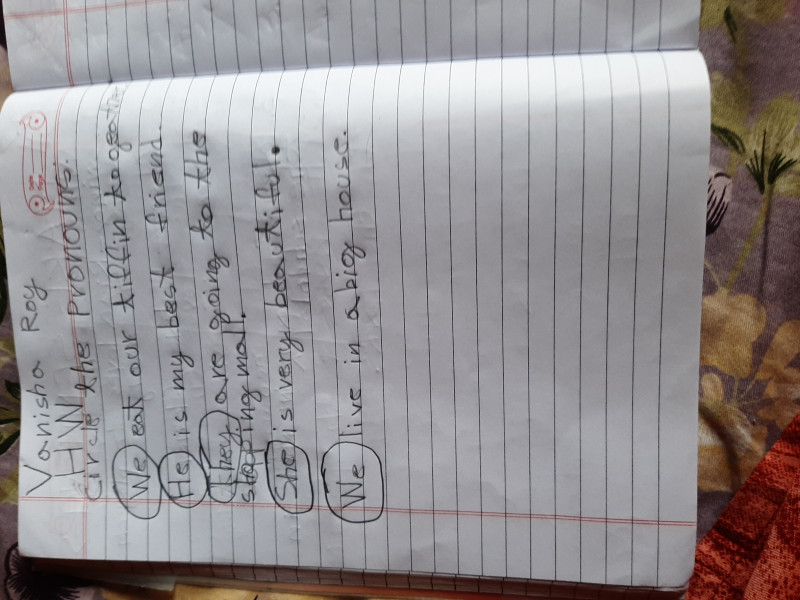 Vanisha Roy
HW
Circle the pronouns.
We eat our tiffin together
He is my best friend.
They are going to the
shopping mall.
She is very beautiful.
We live in a big house.